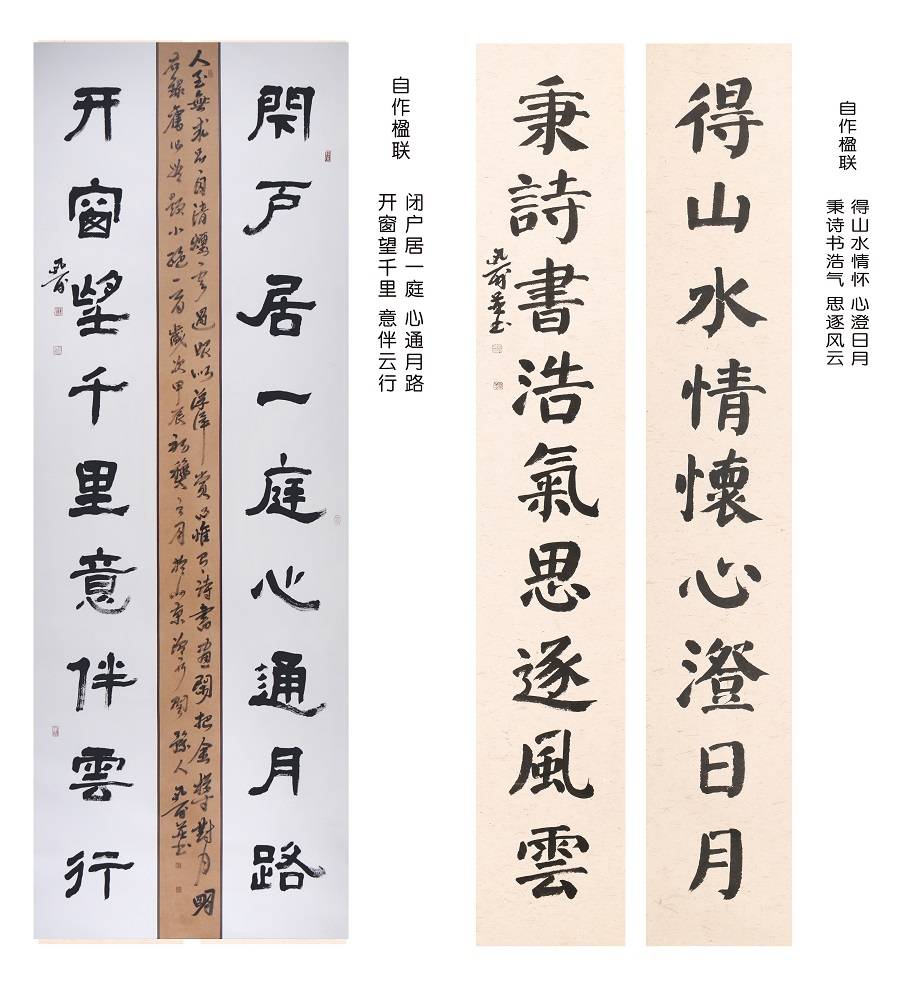 自作楹联
得山水情怀 心澄日月
秉诗书浩气 思逐风云
得山水情懷心澄日月
秉詩書浩氣思逐風雲
自作楹联
闭户居一庭 心通月路
开窗望千里 意伴云行
閇户居一庭心通月路
人至無求品自清 過眼 賞心惟有詩書畫閑把金樽對月明
右錄舊作 題小絕一首歲次甲辰
开窗望千里意伴雲行